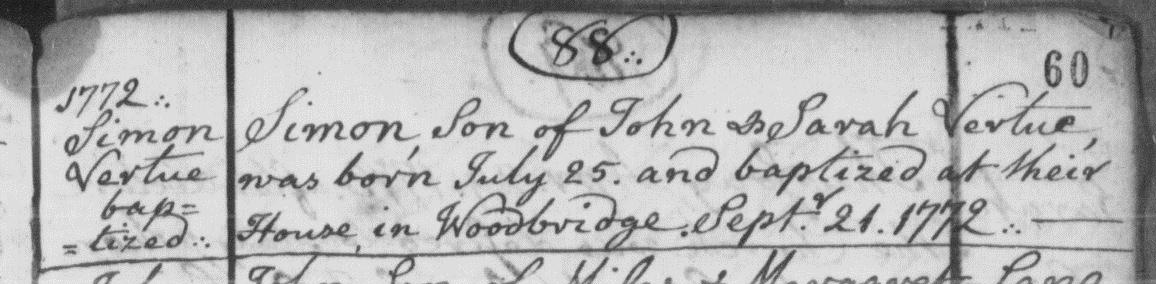 88∴
60
1772∴
Simon
Vertue
bap=
=tized∴
Simon, Son of John & Sarah Vertue,
was born July 25. and baptized at their
House, in Woodbridge. Sept.r 21. 1772∴ —
John Son of Miles & Margaret